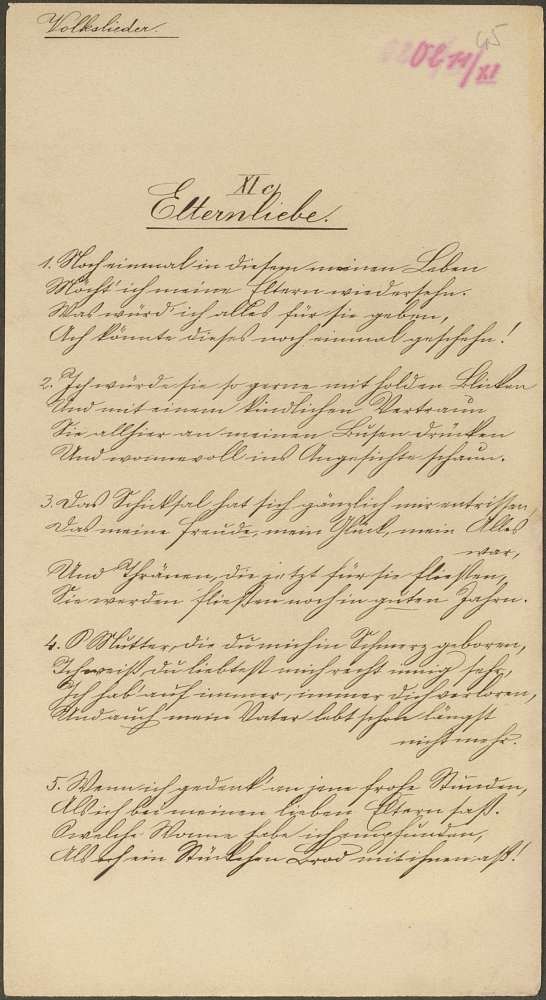 Volkslieder.
XI c)
Elternliebe.
1. Noch einmal in diesem meinen Leben
Möcht' ich meine Eltern wiedersehn.
Was würd' ich alles für sie geben,
Ach könnte dieses noch einmal geschehn!
2. Ich würde sie so gerne mit holden Blicken
Und mit einem kindlichen Vertraun
Sie allhier an meinen Busen drücken
Und wonnevoll ins Angesichte schaun.
3. Das Schicksal hat sich gänzlich mir entrissen,
Das meine Freude, mein Glück, mein Alles
war,
Und Thränen, die jetzt für sie fließen,
Sie werden fließen noch in guten Jahrn.
4. O Mutter, die du mich in Schmerz geboren,
Ich weiß du liebtest mich recht innig sehr,
Ich hab auf immer, immer dich verloren,
Und auch mein Vater lebt schon längst
nicht mehr.
5. Wenn ich gedenk' an jene frohe Stunden,
Als ich bei meinen lieben Eltern saß.
O welche Wonne habe ich empfunden,
Als ich ein Stückchen Brod mit ihnen aß!